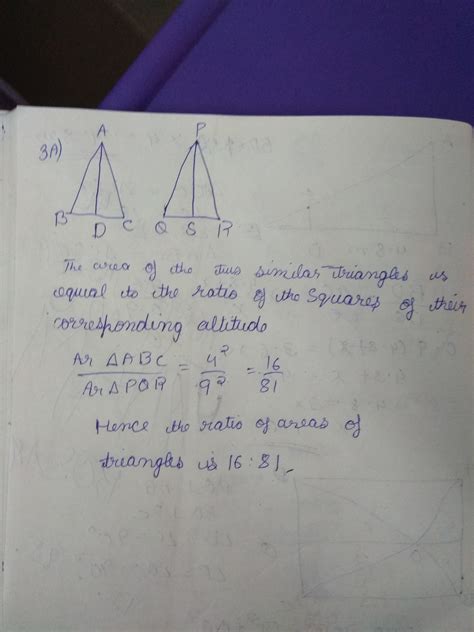 3A)
A
P
B D C Q S R
The area of the two similar triangles is
equal to the ratio of the squares of their
corresponding altitude
Ar △ABC / Ar△PQR = 4² / 9² = 16 / 81
Hence the ratio of areas of
triangles is 16:81